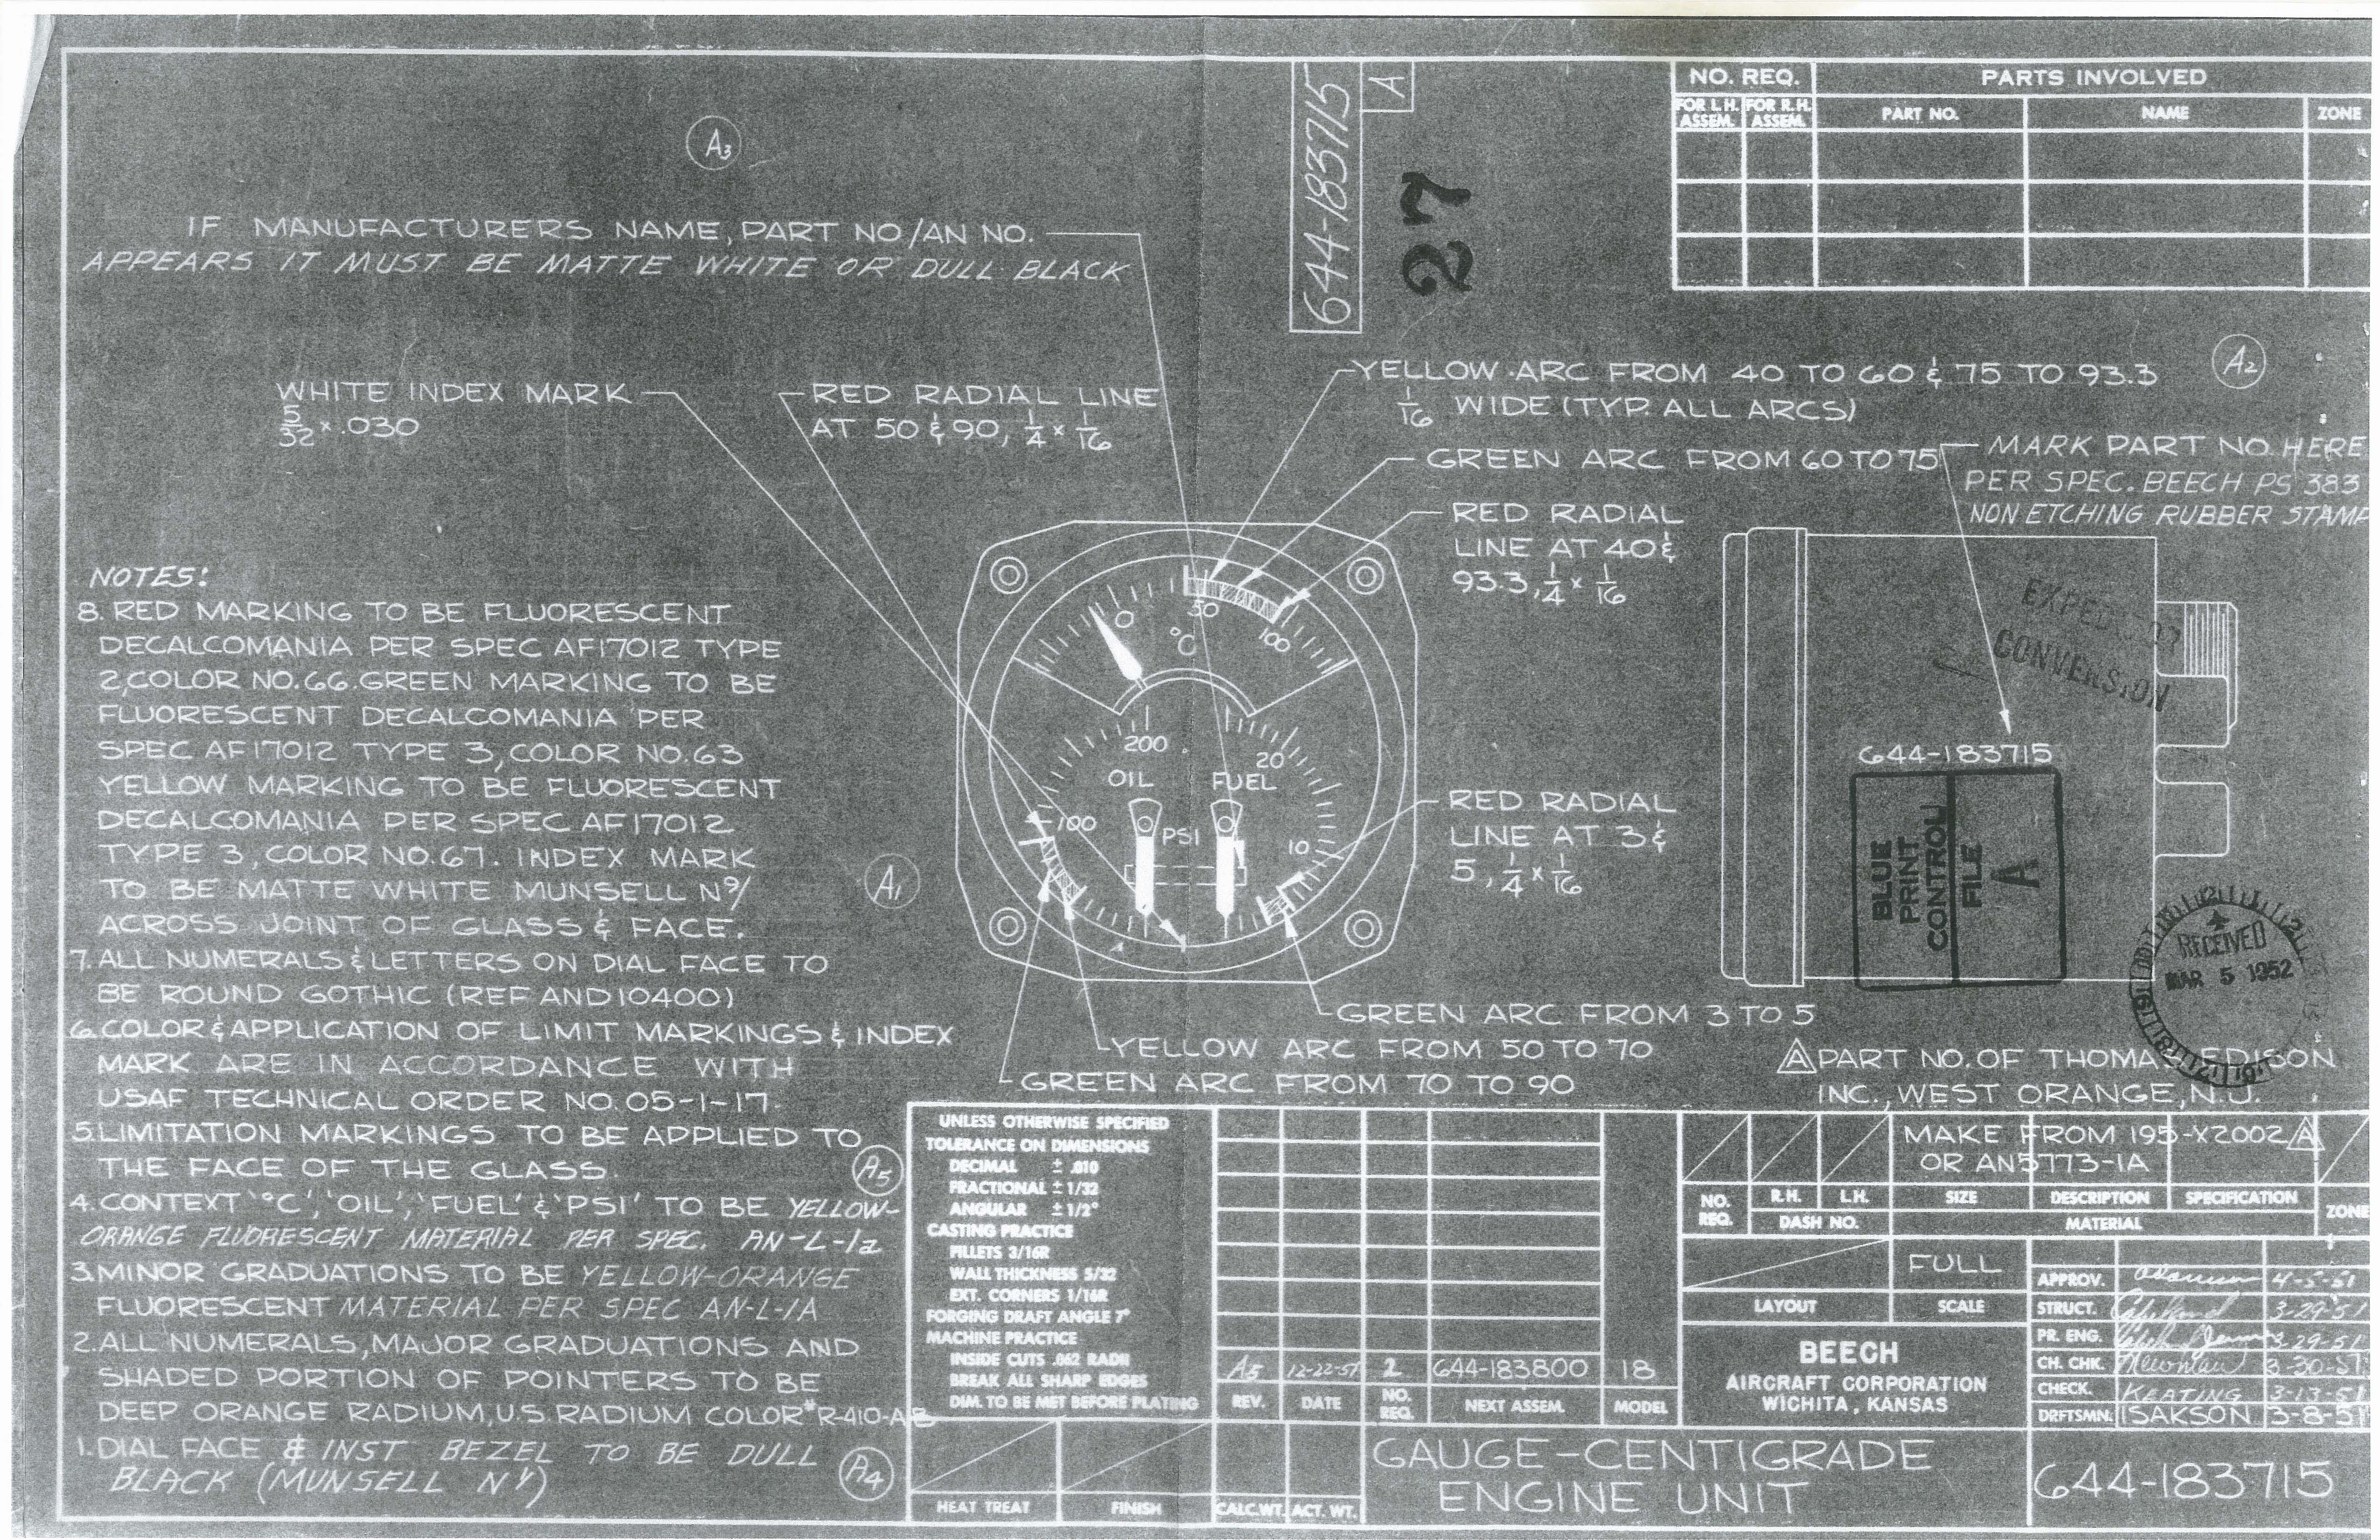 644-183715
A
27
NO. REQ.
PARTS INVOLVED
FOR L.H. ASSEM.
FOR R.H. ASSEM.
PART NO.
NAME
ZONE
A3
IF MANUFACTURERS NAME, PART NO/AN NO.
APPEARS IT MUST BE MATTE WHITE OR DULL BLACK
WHITE INDEX MARK
5/32 x .030
RED RADIAL LINE
AT 50 & 90, 1/4 x 1/16
YELLOW ARC FROM 40 TO 60 & 75 TO 93.3
1/16 WIDE (TYP. ALL ARCS)
A2
GREEN ARC FROM 60 TO 75
MARK PART NO. HERE
PER SPEC. BEECH PS 383
NON ETCHING RUBBER STAMP
RED RADIAL
LINE AT 40 &
93.3, 1/4 x 1/16
0
50
100
°C
200
20
OIL
FUEL
100
PSI
10
RED RADIAL
LINE AT 3 &
5, 1/4 x 1/16
GREEN ARC FROM 3 TO 5
YELLOW ARC FROM 50 TO 70
GREEN ARC FROM 70 TO 90
CONVERSION
644-183715
BLUE
PRINT
CONTROL
FILE
A
RECEIVED
MAR 5 1952
A PART NO. OF THOMAS EDISON
INC., WEST ORANGE, N.J.
A1
NOTES:
8. RED MARKING TO BE FLUORESCENT
DECALCOMANIA PER SPEC AF17012 TYPE
2, COLOR NO. 66. GREEN MARKING TO BE
FLUORESCENT DECALCOMANIA PER
SPEC AF17012 TYPE 3, COLOR NO. 63
YELLOW MARKING TO BE FLUORESCENT
DECALCOMANIA PER SPEC AF17012
TYPE 3, COLOR NO. 67. INDEX MARK
TO BE MATTE WHITE MUNSELL N9/
ACROSS JOINT OF GLASS & FACE.
7. ALL NUMERALS & LETTERS ON DIAL FACE TO
BE ROUND GOTHIC (REF AND10400)
6. COLOR & APPLICATION OF LIMIT MARKINGS & INDEX
MARK ARE IN ACCORDANCE WITH
USAF TECHNICAL ORDER NO. 05-1-17.
5. LIMITATION MARKINGS TO BE APPLIED TO
THE FACE OF THE GLASS.
A5
4. CONTEXT '°C', 'OIL', 'FUEL' & 'PSI' TO BE YELLOW-
ORANGE FLUORESCENT MATERIAL PER SPEC. AN-L-1a
3. MINOR GRADUATIONS TO BE YELLOW-ORANGE
FLUORESCENT MATERIAL PER SPEC AN-L-1A
2. ALL NUMERALS, MAJOR GRADUATIONS AND
SHADED PORTION OF POINTERS TO BE
DEEP ORANGE RADIUM, U.S. RADIUM COLOR #R-410-A
1. DIAL FACE & INST BEZEL TO BE DULL
BLACK (MUNSELL N1/)
A4
UNLESS OTHERWISE SPECIFIED
TOLERANCE ON DIMENSIONS
DECIMAL ± .010
FRACTIONAL ± 1/32
ANGULAR ± 1/2°
CASTING PRACTICE
FILLETS 3/16R
WALL THICKNESS 5/32
EXT. CORNERS 1/16R
FORGING DRAFT ANGLE 7°
MACHINE PRACTICE
INSIDE CUTS .062 RADII
BREAK ALL SHARP EDGES
DIM. TO BE MET BEFORE PLATING
HEAT TREAT
FINISH
CALC. WT.
ACT. WT.
A5 12-22-51 2 644-183800 18
REV. DATE NO. REQ. NEXT ASSEM. MODEL
MAKE FROM 195-X2002 A
OR AN5773-1A
NO. REQ.
R.H. L.H.
DASH NO.
SIZE DESCRIPTION SPECIFICATION
MATERIAL
ZONE
LAYOUT
FULL
SCALE
BEECH
AIRCRAFT CORPORATION
WICHITA, KANSAS
APPROV. 4-5-51
STRUCT. 3-29-51
PR. ENG. 3-29-51
CH. CHK. Newman 3-30-51
CHECK. KEATING 3-13-51
DRFTSMN. ISAKSON 3-8-51
GAUGE-CENTIGRADE
ENGINE UNIT
644-183715